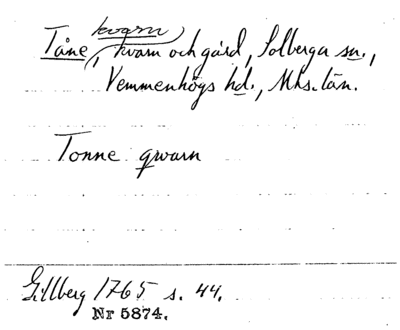 kvarn
Tåne, kvarn och gård, Solberga sn.,
Vemmenhögs hd., Mhs. län.
Tonne qwarn
Gillberg 1765 s. 44.
Nr 5874.